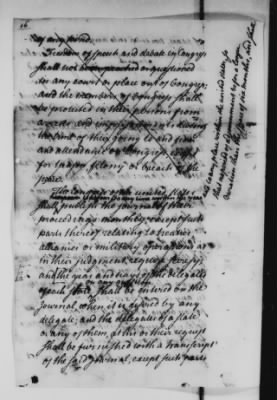 of any kind.
Freedom of speech and debate in Congress
shall not be impeached or questioned
in any court or place out of Congress,
and the members of Congress shall
be protected in their persons from
arrests and imprisonments, during
the time of their going to and from
and attendance on Congress, except
for treason felony or breach of the
peace.
The Congress of the united states
shall publish the journal of their
proceedings monthly, except such
parts thereof relating to treaties
alliances or military operations as
in their judgment require secrecy
and the yeas and nays of the delegates
of each state
on any question
shall be entered on the
Journal, when it is desired by any
delegate, and the delegates of a state
or any of them, at his or their request
shall be furnished with a transcript
of the said Journal, except such parts
to any place within the united states so
that
duration than the space of six months, and shall